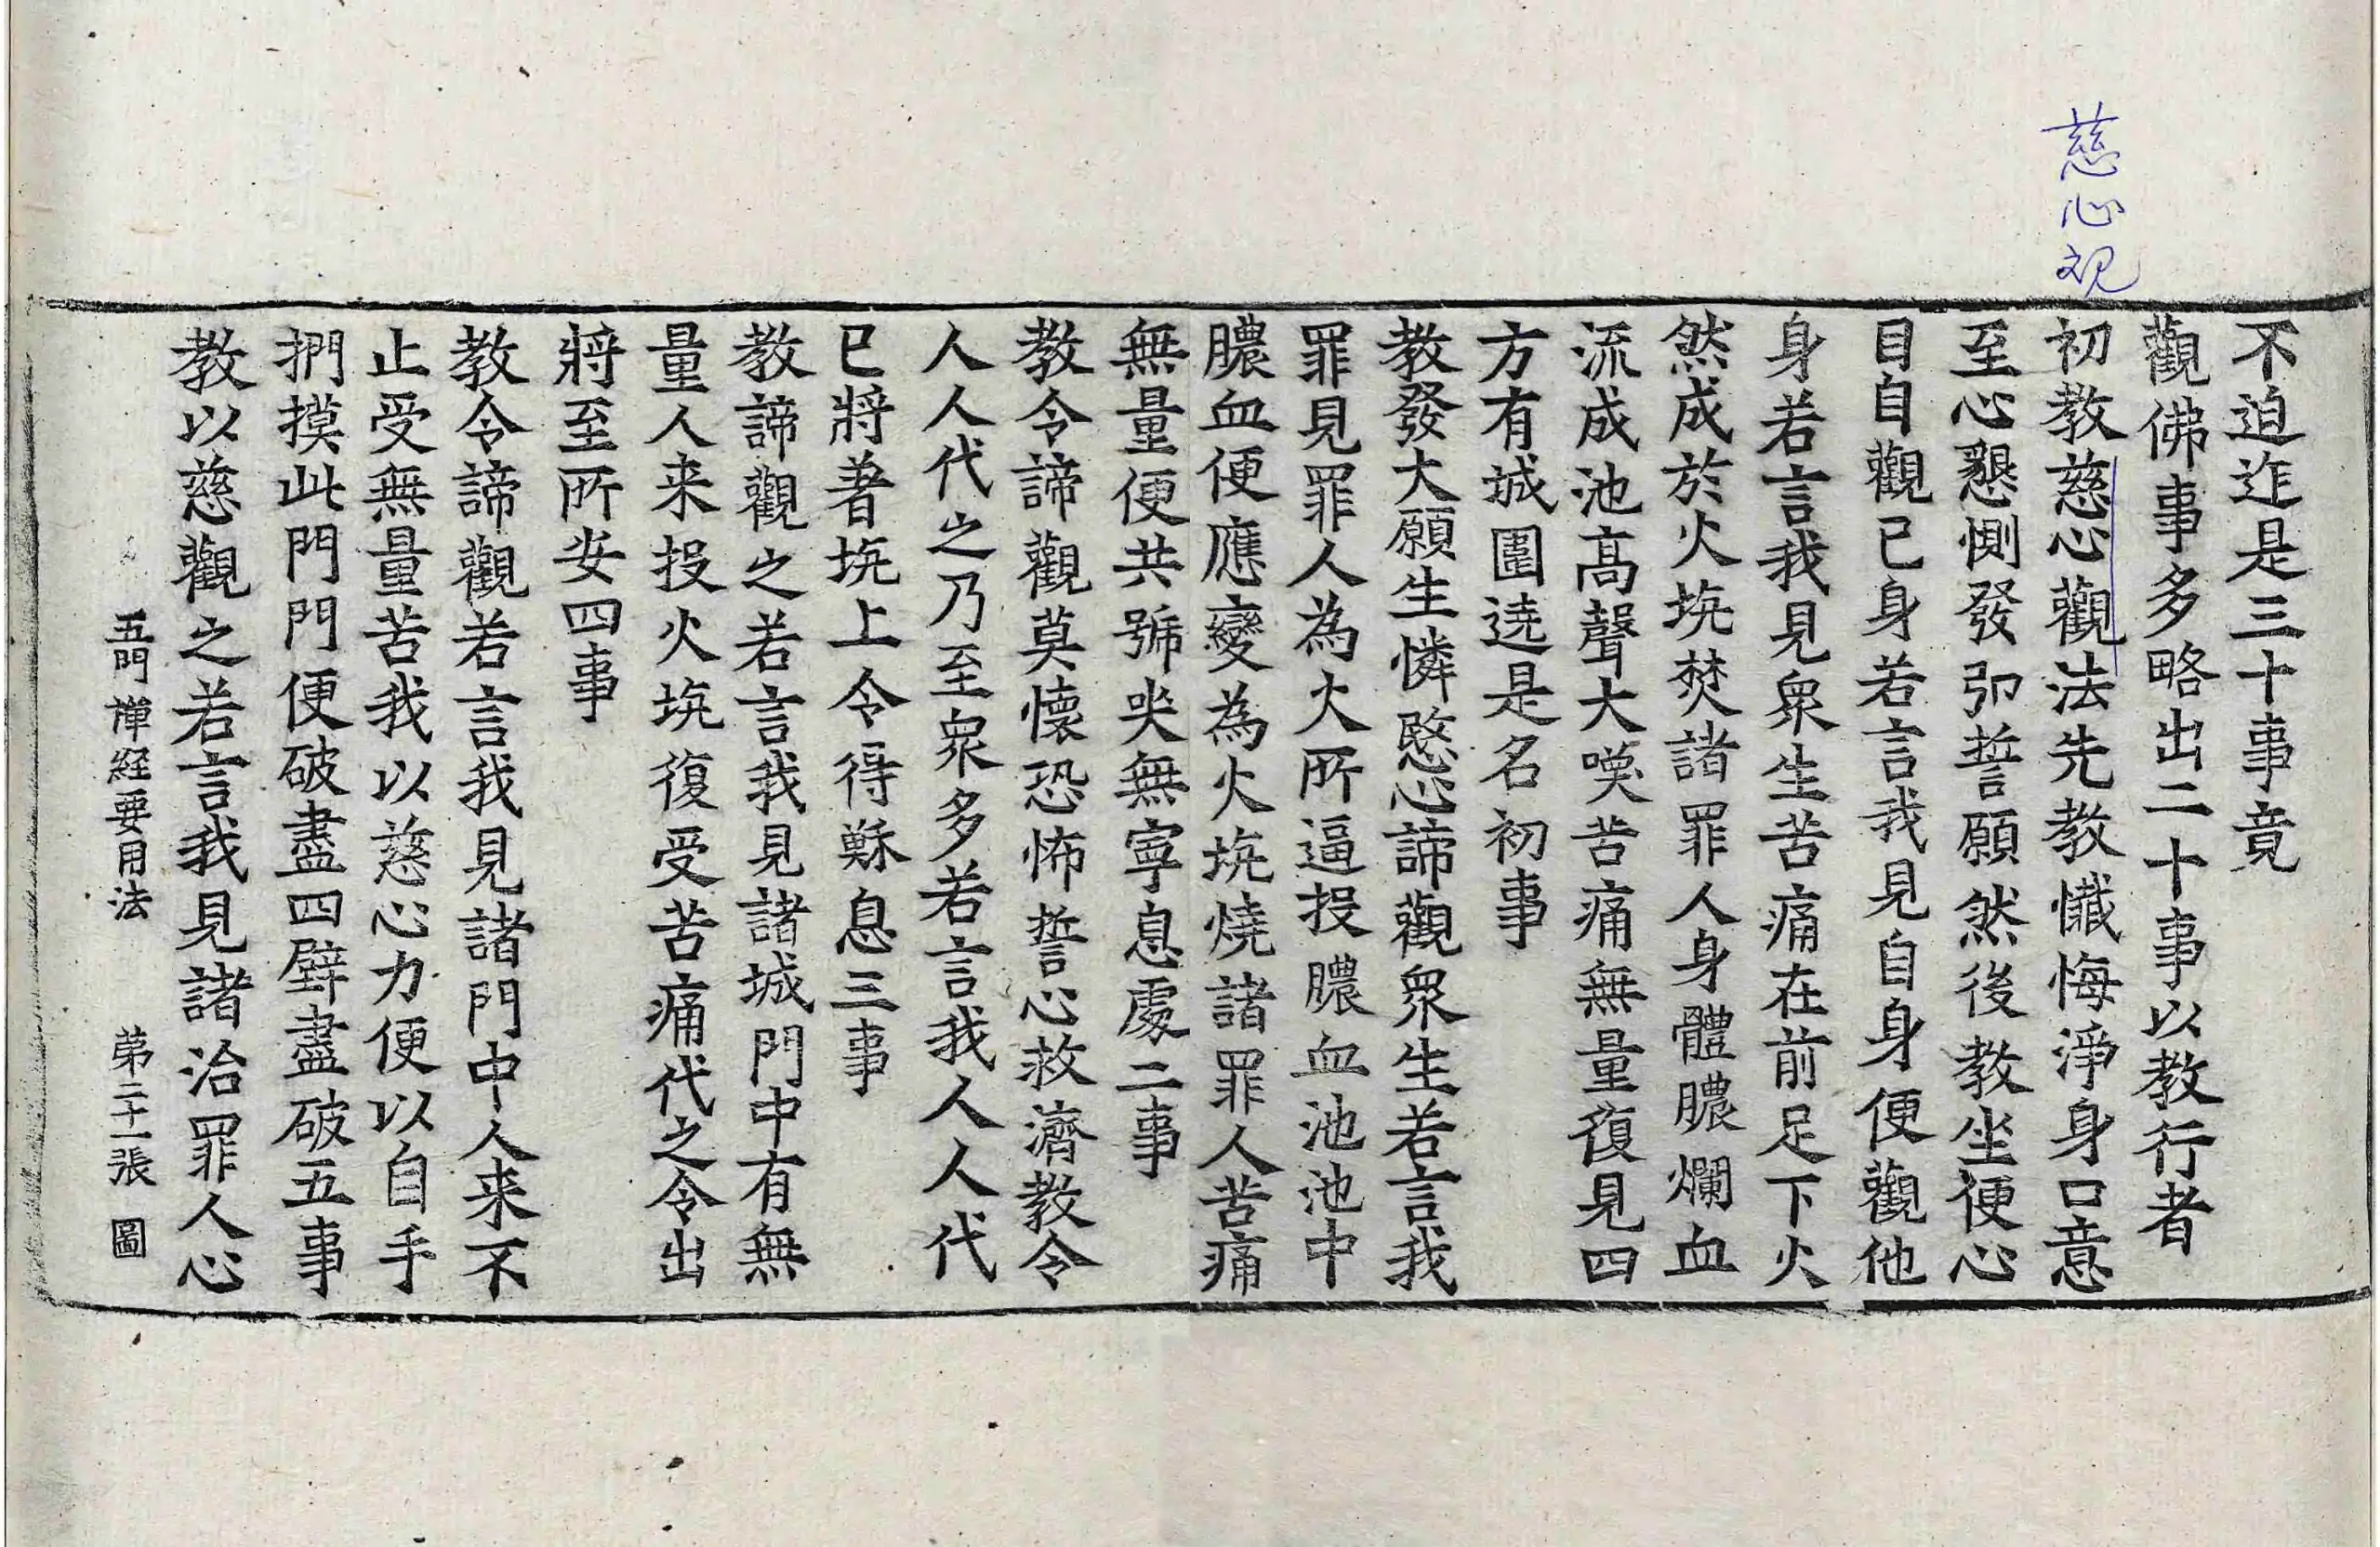 慈心观
不迫迮是三十事竟
觀佛事多略出二十事以教行者
初教慈心觀法先教懺悔淨身口意
至心懇惻發弘誓願然後教坐便心
目自觀已身若言我見自身便觀他
身若言我見衆生苦痛在前足下火
然成於火坑焚諸罪人身體膿爛血
流成池高聲大喚苦痛無量復見四
方有城圍遶是名初事
教發大願生憐愍心諦觀衆生若言我
罪見罪人為火所逼投膿血池池中
膿血便應變為火坑燒諸罪人苦痛
無量便共號哭無寧息處二事
教令諦觀莫懷恐怖誓心救濟教令
人人代之乃至衆多若言我人人代
已將著坑上令得穌息三事
教諦觀之若言我見諸城門中有無
量人来投火坑復受苦痛代之令出
將至所安四事
教令諦觀若言我見諸門中人来不
止受無量苦我以慈心力便以自手
捫摸此門門便破盡四壁盡破五事
教以慈觀之若言我見諸治罪人心
五門禪経要用法 苐二十一張 圖